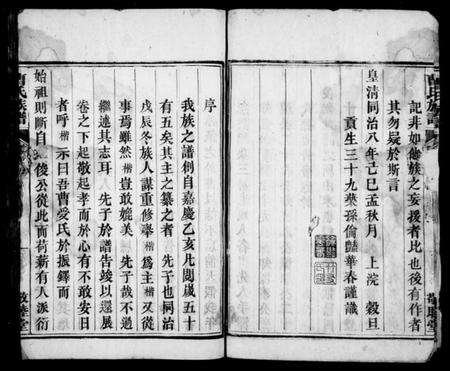 曹氏族譜
記非如他族之妄援者比也後有作者
其勿疑於斯言
皇清同治八年己巳孟秋月上浣穀旦
十貢生三十九葉孫倫豔華春謹識
敬睦堂
曹氏族譜
序
我族之譜創自嘉慶乙亥凡閱歲五十
有五矣其主之纂之者 先子也同治
戊辰冬族人謀重修舉楷為主楷又從
事焉雖然楷豈敢媲美 先子哉不過
繼述其志耳 先子於譜告竣以還展
卷之下起敬起孝而於心有不敢安日
者呼楷示曰吾曹受氏於振鐸而
始祖則斷自 俊公從此而荷薪有人派衍
敬睦堂